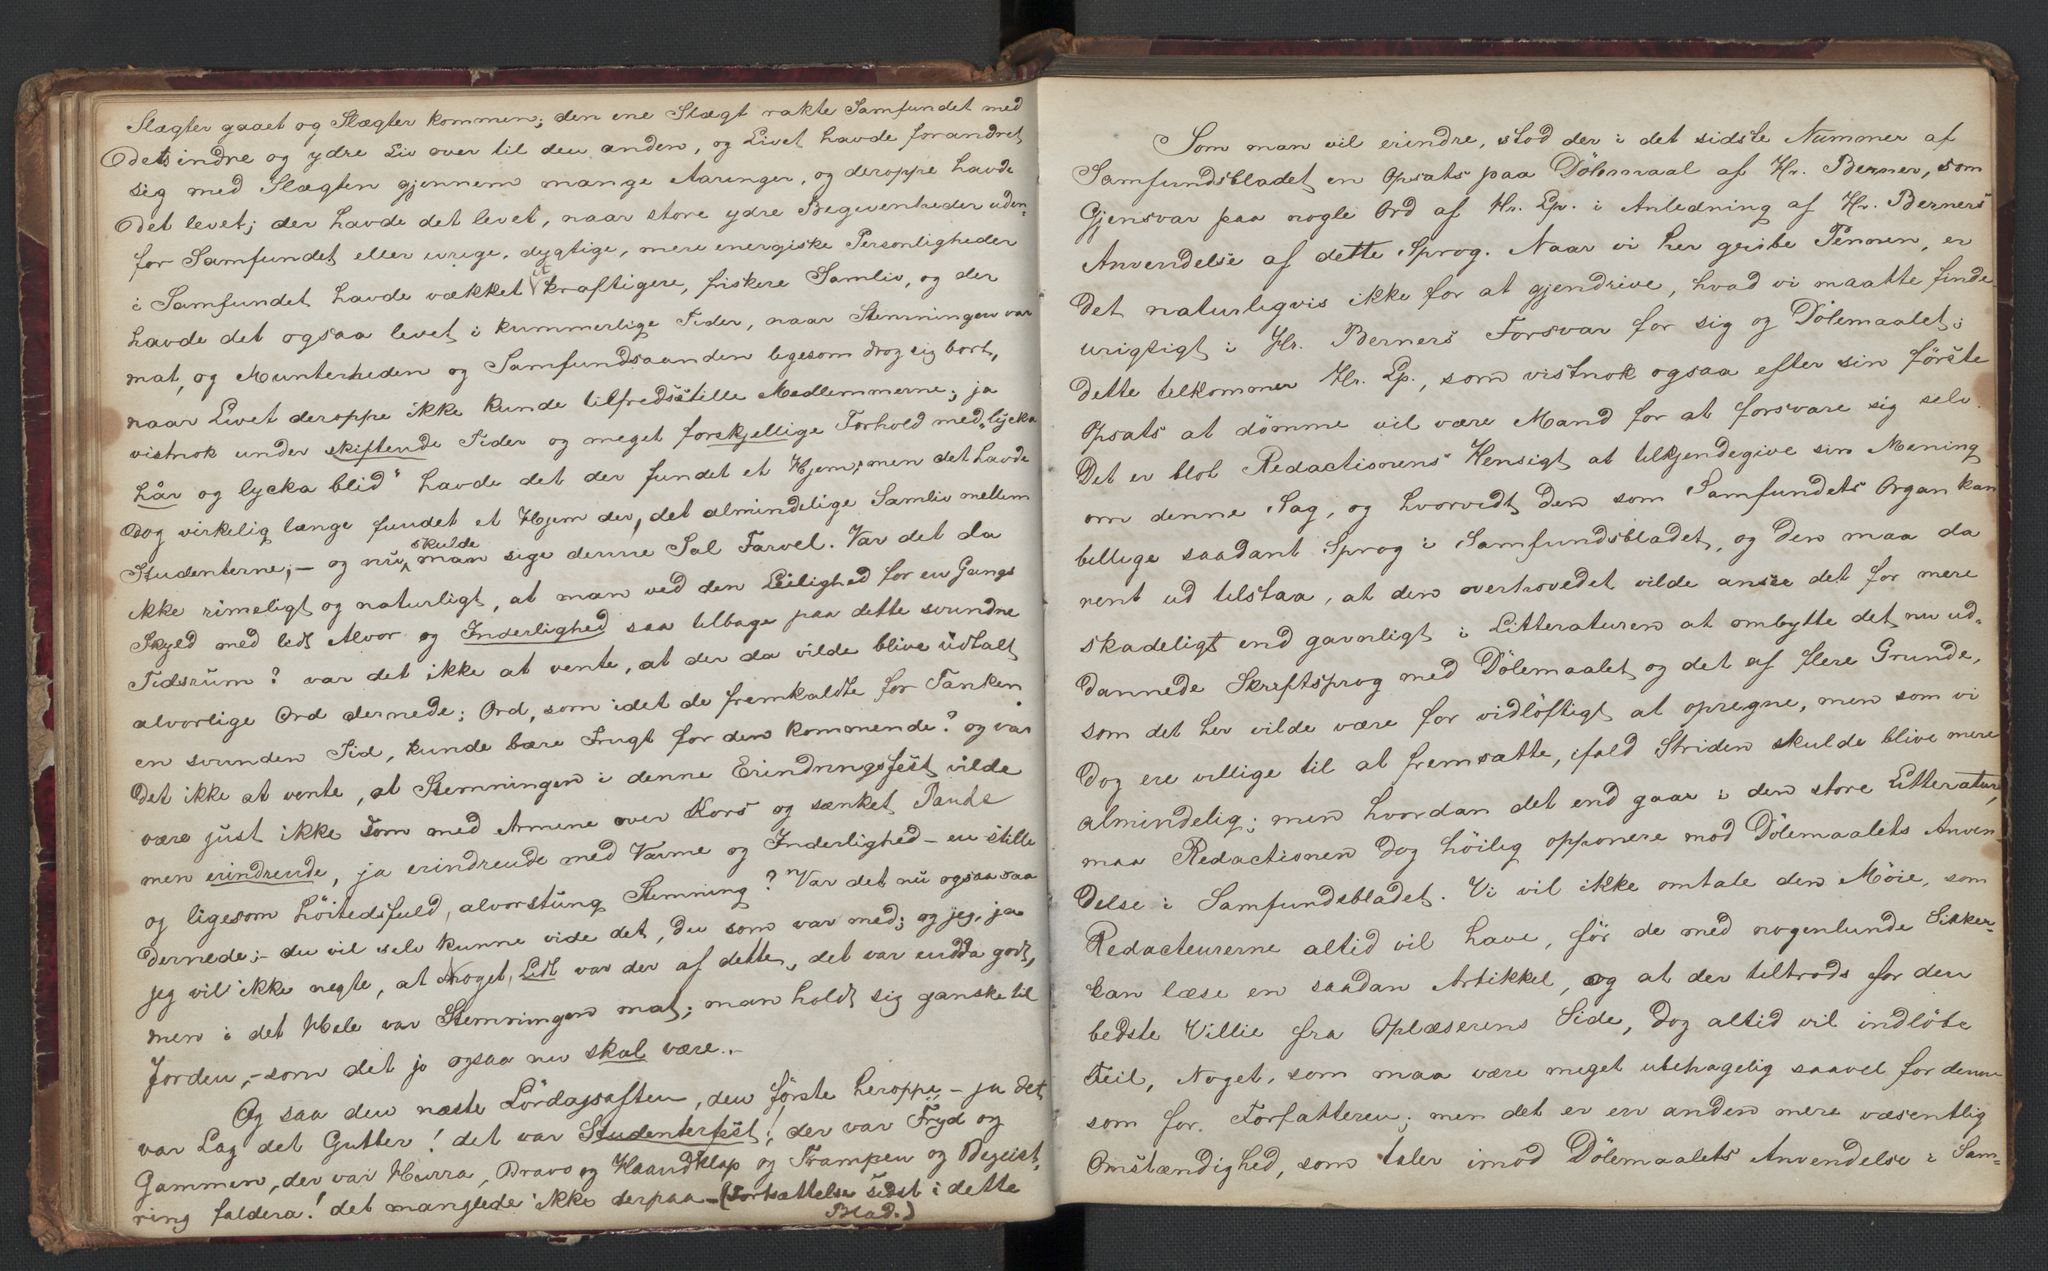 Slægter gaaet og Slægter kommen; den ene Slægt rakte Samfundet med
dets indre og ydre Liv over til den anden, og Livet havde forandret
sig med Slægten gjennem mange Aaringer, og deroppe havde
det levet; der havde det levet, naar store ydre Begivenheder uden-
for Samfundet eller ivrige, dygtige, mere energiske Personligheder
i Samfundet havde vækket et kraftigere, friskere Samliv, og der
havde det ogsaa levet i kummerlige Tider, naar Stemningen var
mat, og Munterheden og Samfundsaanden ligesom drog sig bort,
naar Livet deroppe ikke kunde tilfredsstille Medlemmerne; ja
vistnok under skiftende Tider og meget forskjellige Forhold med „lycka
hår og lycka blid“ havde det der fundet et Hjem; men det havde
dog virkelig længe fundet et Hjem der, det almindelige Samliv mellem
Studenterne; – og nu skulde man sige denne Sal Farvel. Var det da
ikke rimeligt og naturligt, at man ved den Leilighed for en Gangs
Skyld med lidt Alvor og Inderlighed saa tilbage paa dette svundne
Tidsrum? var det ikke at vente, at der da vilde blive udtalt
alvorlige Ord dernede; Ord, som idet de fremkaldte for Tanken
en svunden Tid, kunde bære Frugt for den kommende? og var
det ikke at vente, at Stemningen i denne Erindringsfest vilde
være just ikke som med Armene over Kors og sænket Pande
men erindrende, ja erindrende med Varme og Inderlighed – en stille
og ligesom höitidsfuld, alvorstung Stemning? Var det nu ogsaa saa
dernede; – du vil selv kunne vide det, du som var med; og jeg, ja
jeg vil ikke negte, at Noget, Lidt var der af dette, det var endda godt,
men i det Hele var Stemningen mat; man holdt sig ganske til
Jorden, – som det jo ogsaa nu skal være. –
Og saa den næste Lördagsaften, den förste heroppe – ja det
var Lag det Gutter! det var Studenterfest! der var Fryd og
Gammen, der var Hurra, Bravo og Haandklap og Trampen og Begeist-
ring faldera! det manglede ikke derpaa – (Fortsættelse sidst i dette
Blad.)
Som man vil erindre, stod der i det sidste Nummer af
Samfundsbladet en Opsats paa Dölemaal af Hr. Berner, som
Gjensvar paa nogle Ord af Hr. Ep. i Anledning af Hr. Berners
Anvendelse af dette Sprog. Naar vi her gribe Pennen, er
det naturligvis ikke for at gjendrive, hvad vi maatte finde
urigtigt i Hr. Berners Forsvar for sig og Dölemaalet;
dette tilkommer Hr. Ep., som vistnok ogsaa efter sin förste
Opsats at dömme vil være Mand for at forsvare sig selv.
Det er blot Redactionens Hensigt at tilkjendegive sin Mening
om denne Sag, og hvorvidt den som Samfundets Organ kan
billige saadant Sprog i Samfundsbladet, og den maa da
rent ud tilstaa, at den overhovedet vilde ansee det for mere
skadeligt end gavnligt i Litteraturen at ombytte det nu ud-
dannede Skriftsprog med Dölemaalet og det af flere Grunde,
som det her vilde være for vidlöftigt at opregne, men som vi
dog ere villige til at fremsætte, ifald Striden skulde blive mere
almindelig; men hvordan det end gaar i den store Litteratur,
maa Redactionen dog höilig opponere mod Dölemaalets Anven-
delse i Samfundsbladet. Vi vil ikke omtale den Möie, som
Redacteurerne altid vil have, för de med nogenlunde Sikker-
kan læse en saadan Artikkel, og at der tiltrods for den
bedste Villie fra Oplæserens Side, dog altid vil indlöbe
Feil, Noget, som maa være meget ubehagelig saavel for denne
som for Forfatteren; men det er en anden mere væsentlig
Omstændighed, som taler imod Dölemaalets Anvendelse i Sam-